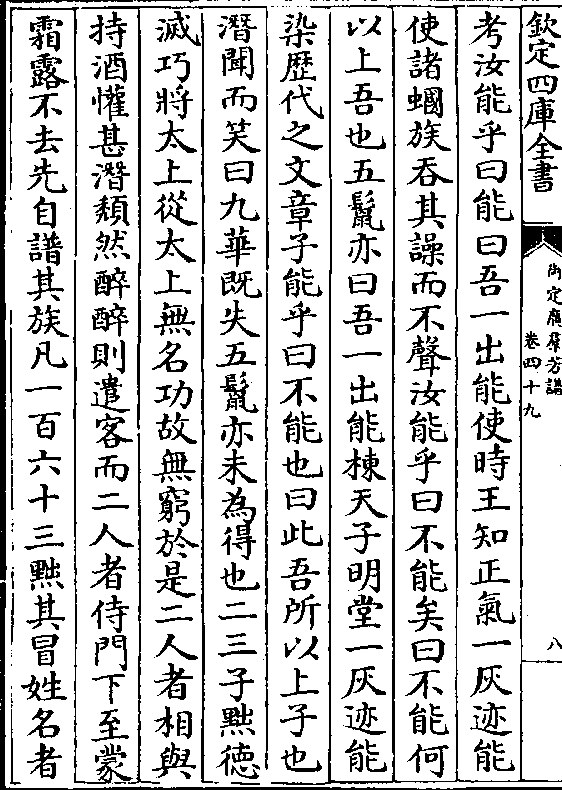 欽定四庫全書
御定廣羣芳譜
卷四十九
八
考汝能乎曰能曰吾一出能使時王知正氣一灰迹能
使諸蟈族吞其譟而不聲汝能乎曰不能矣曰不能何
以上吾也五鬛亦曰吾一出能棟天子明堂一灰迹能
染歴代之文章子能乎曰不能也曰此吾所以上子也
潛聞而笑曰九華既失五鬛亦未為得也二三子黜徳
滅巧將太上從太上無名功故無窮於是二人者相與
持酒懽甚潛頽然醉醉則遣客而二人者侍門下至蒙
霜露不去先自譜其族凡一百六十三黜其冒姓名者